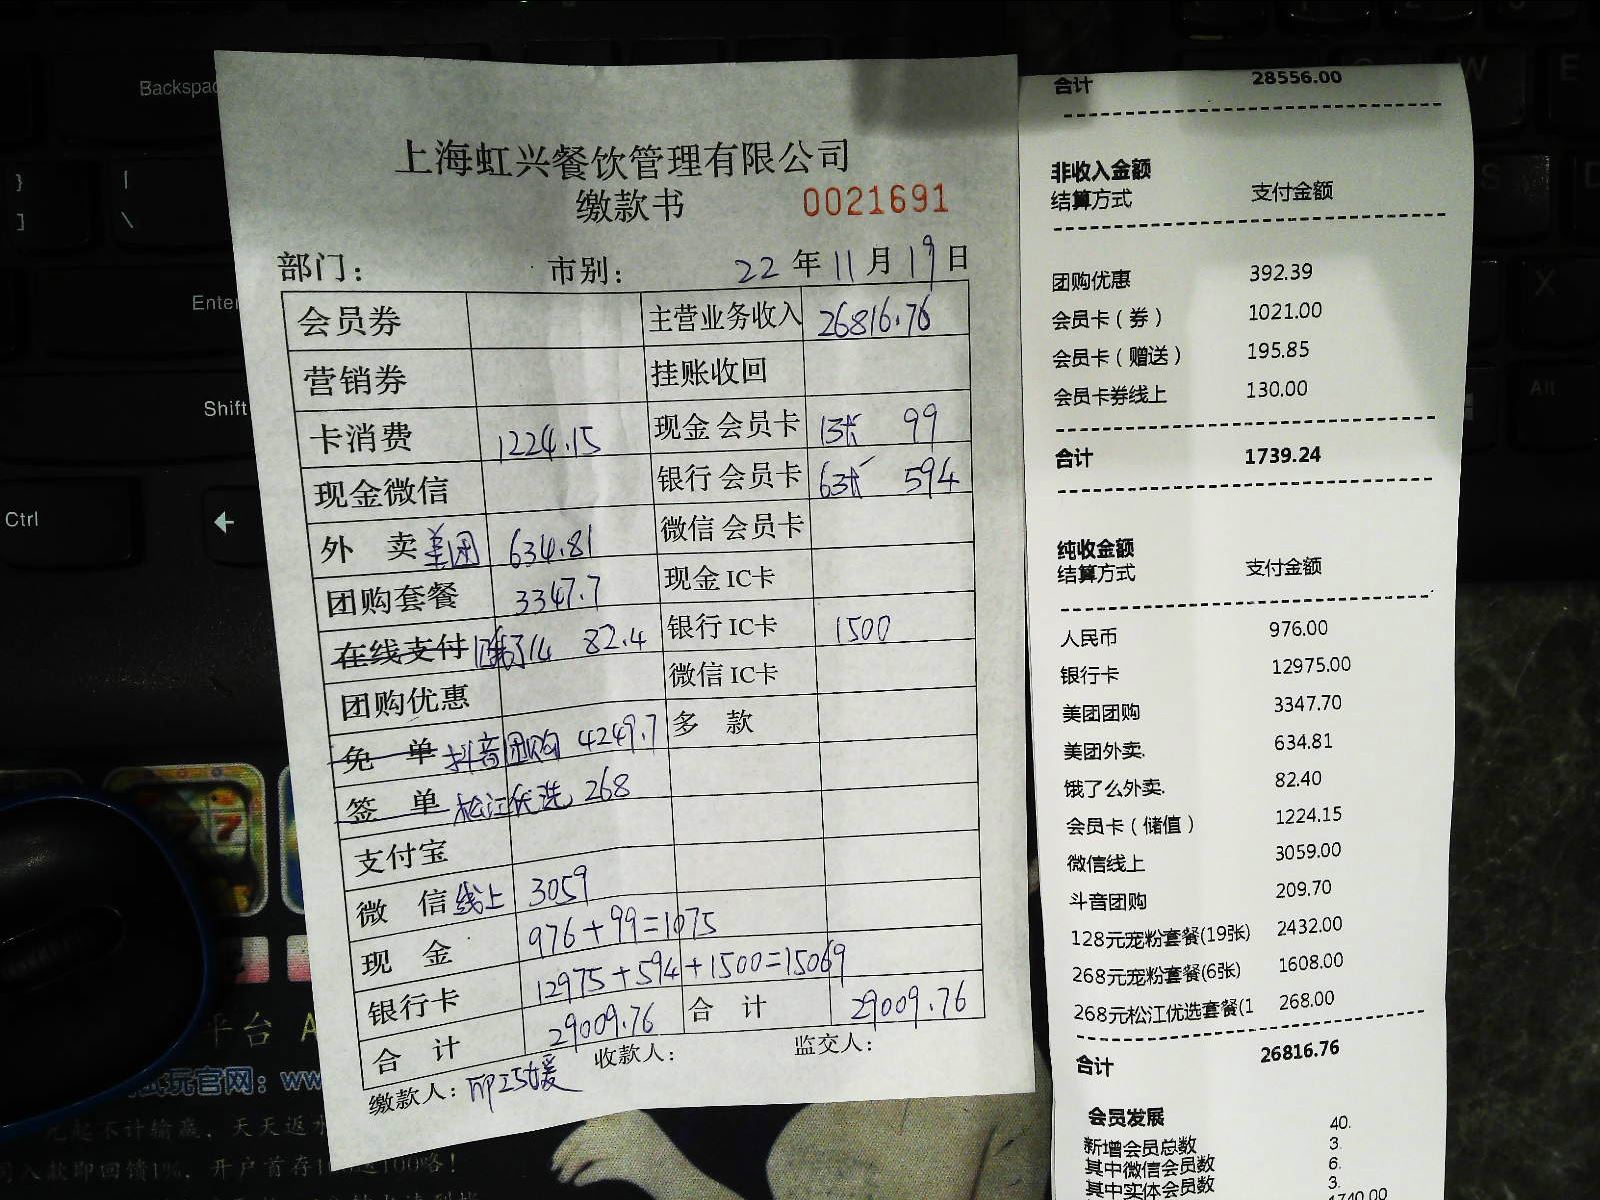 上海虹兴餐饮管理有限公司
缴款书 0021691
部门： 市别： 22 年 11 月 19 日
会员券 主营业务收入 26816.76
营销券 挂账收回
卡消费 1224.15 现金 会员卡 13张 99
现金微信 银行 会员卡 63张 594
外 卖 美团 634.81 微信 会员卡
团购套餐 3347.7 现金 IC卡
在线支付 82.4 银行 IC卡 1500
团购优惠 微信 IC卡
免 单 抖音团购 4249.7 多 款
签 单 松江优选 268
支付宝
微 信 线上 3059
现 金 976+99=1075
银行卡 12975+594+1500=15069
合 计 29009.76 合 计 29009.76
缴款人： 收款人： 监交人：
合计 28556.00
非收入金额
结算方式 支付金额
团购优惠 392.39
会员卡（券） 1021.00
会员卡（赠送） 195.85
会员卡券线上 130.00
合计 1739.24
纯收金额
结算方式 支付金额
人民币 976.00
银行卡 12975.00
美团团购 3347.70
美团外卖. 634.81
饿了么外卖. 82.40
会员卡（储值） 1224.15
微信线上 3059.00
斗音团购 209.70
128元宠粉套餐(19张) 2432.00
268元宠粉套餐(6张) 1608.00
268元松江优选套餐(1 268.00
合计 26816.76
会员发展
新增会员总数 40.
其中微信会员数 3.
其中实体会员数 6.
3.
1740.00
Backspac
Enter
Shift
Ctrl
}
]
|
\
W
E
S
D
X
Alt
平台 A
玩官网：ww
天天返水
开户首存